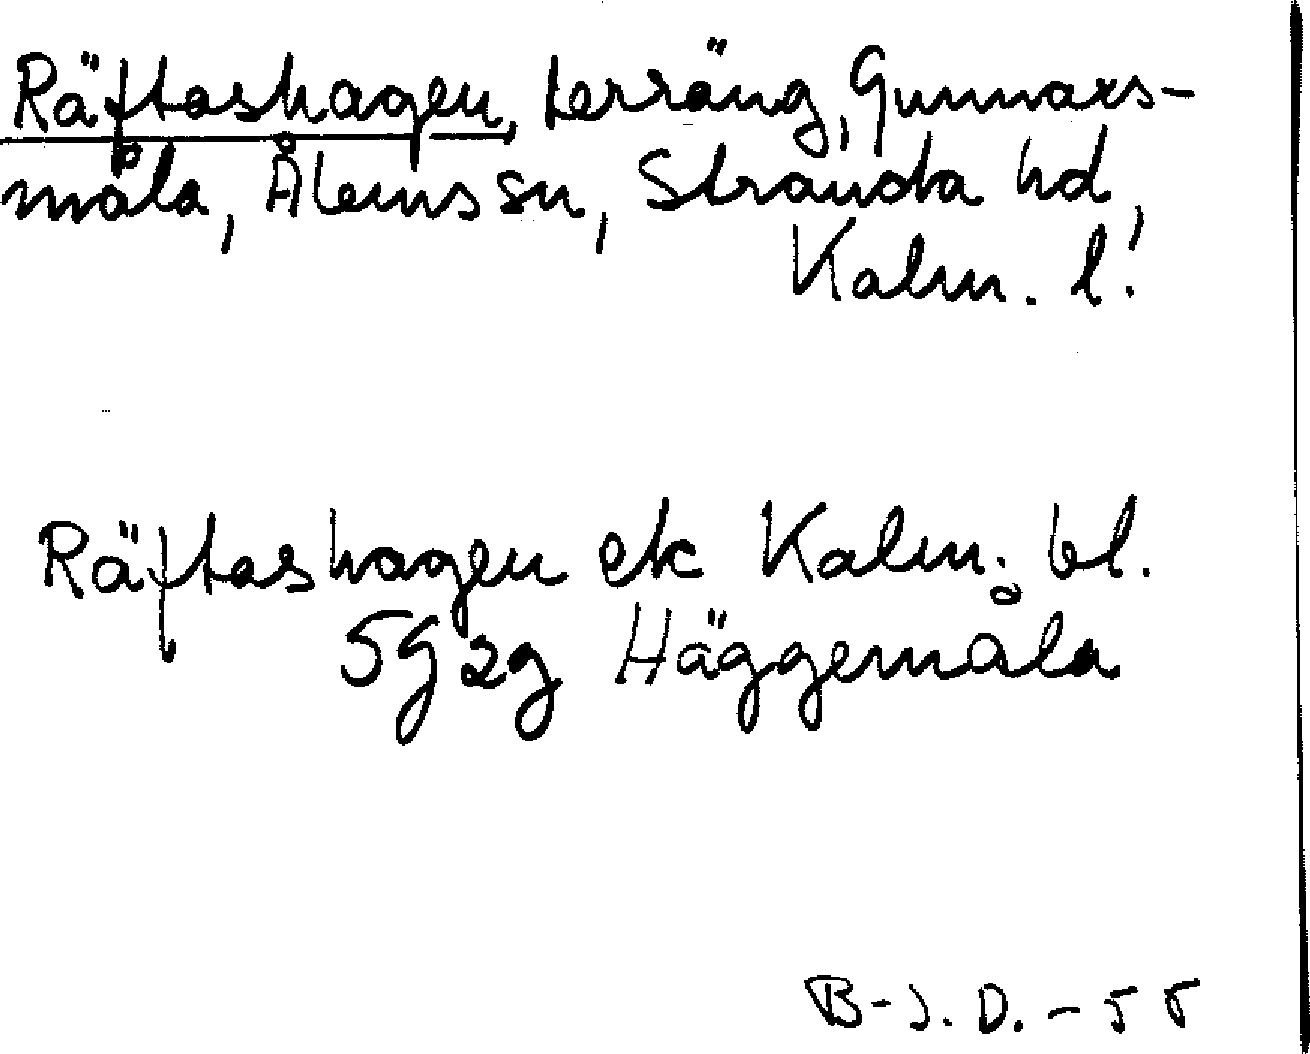 Räftashagen, terräng, Gunnars-
måla, Ålems sn, Stranda hd,
Kalm. l.
Räftashagen ek Kalm. bl.
5G2g Häggemåla
B-J.D.-55